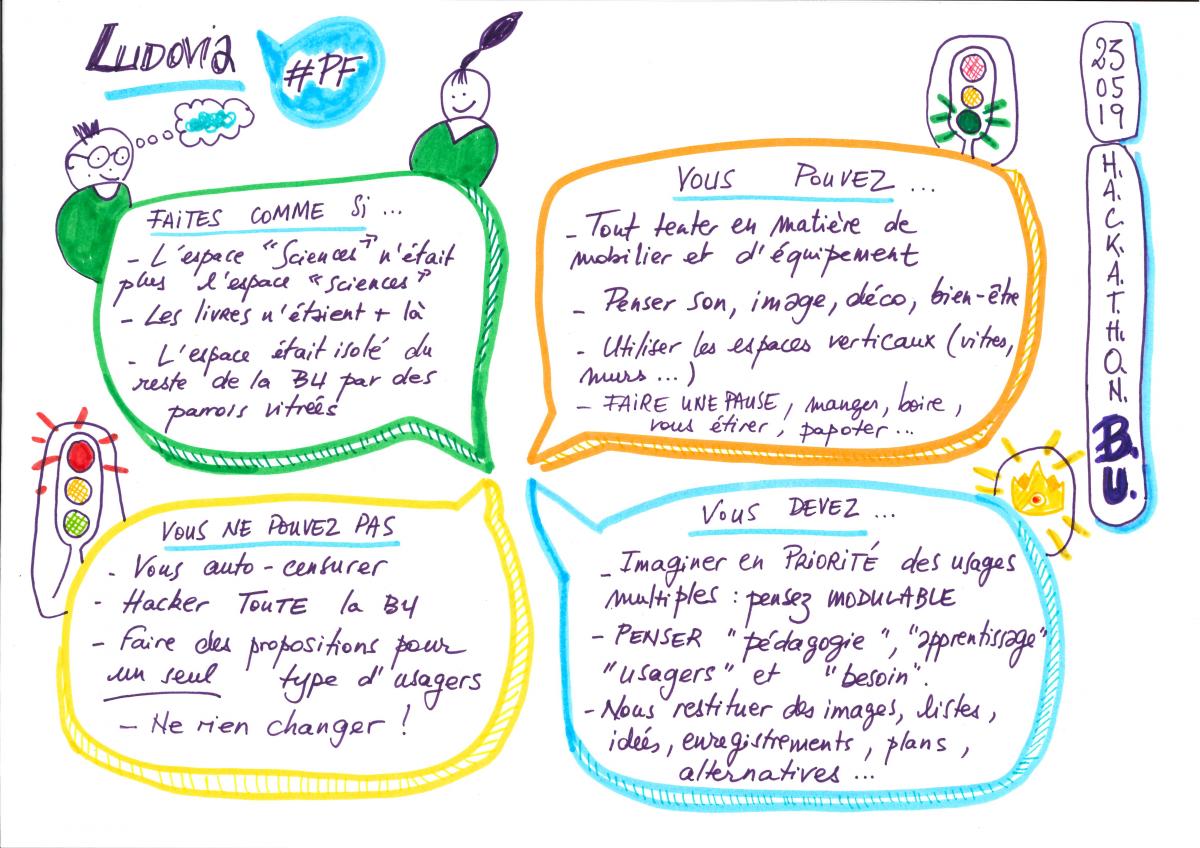 LUDOVIA
#PF
23
05
19
H.A.C.K.A.T.H.O.N.
B.U.
FAITES COMME Si ...
- L'espace "Sciences" n'était
plus l'espace "sciences"
- Les livres n'étaient + là
- L'espace était isolé du
reste de la B4 par des
parrois vitrées
VOUS POUVEZ ...
- Tout tenter en matière de
mobilier et d'équipement
- Penser son, image, déco, bien-être
- Utiliser les espaces verticaux (vitres,
murs ...)
- FAIRE UNE PAUSE, manger, boire,
vous étirer, papoter ...
VOUS NE POUVEZ PAS
- Vous auto-censurer
- Hacker TOUTE la B4
- Faire des propositions pour
un seul type d'usagers
- Ne rien changer !
VOUS DEVEZ ...
- Imaginer en PRIORITÉ des usages
multiples : pensez MODULABLE
- PENSER "pédagogie", "apprentissage"
"usagers" et "besoin".
- Nous restituer des images, listes,
idées, enregistrements, plans,
alternatives ...